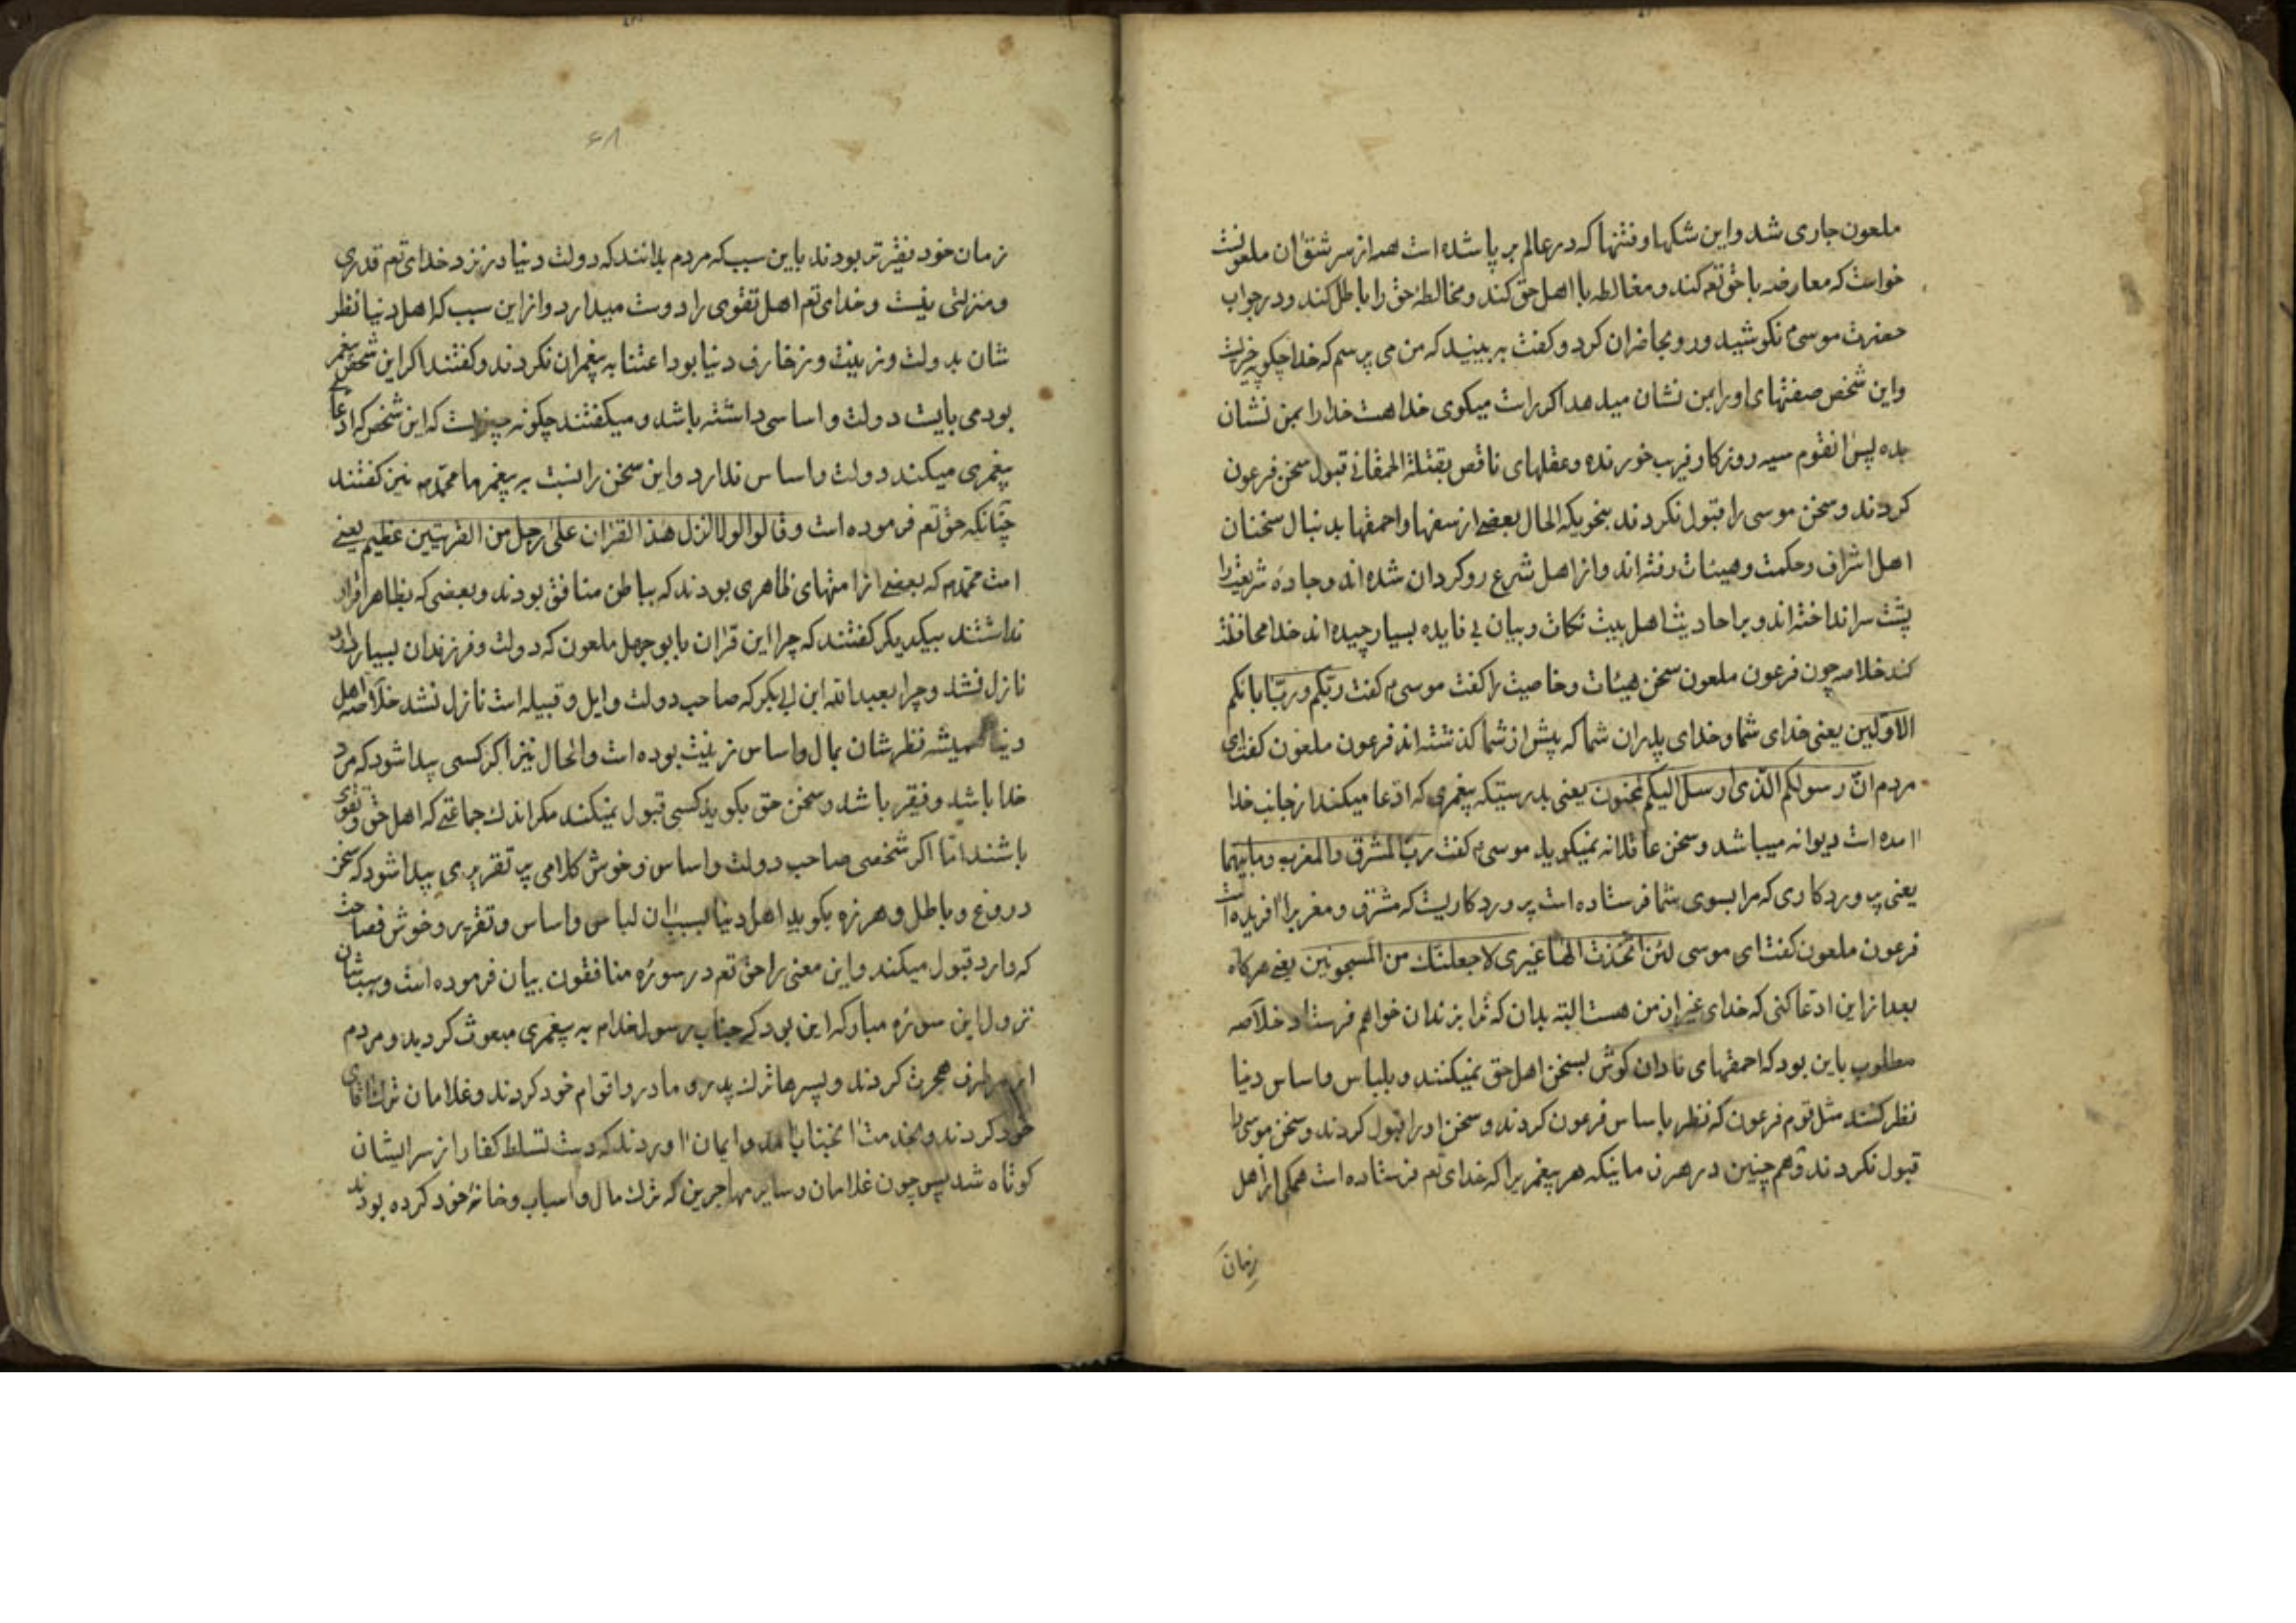 ملعون جاری شد و این شکها و فتنها که در عالم بر پا شده است همه از سر شتق ان ملعونست
خواست که معارضه با حق تعم کند و مغالطه با اهل حق کند و مخالطهٔ حق را باطل کند و در جواب
حضرت موسیٰم نکوشید و رو بحاضران کرد و کفت به بینید که من می پرسم که خدا چکونه چیزیست
و این شخص صفتهای او را بمن نشان میدهد اکر راست میکوی خدا هست خدا را بمن نشان
بده پس انقوم سیه روزکار فریب خورنده و عقلهای ناقص بقتلة الحمقانی قبول سخن فرعون
کردند و سخن موسی را قبول نکردند بنحویکه الحال بعضی از سفها و احمقها بدنبال سخنان
اهل اشراق و حکمت و هیئات رفته اند و از اهل شرع رو کردان شده اند و جادهٔ شریعت را
پشت سر انداخته اند و بر احادیث اهل بیت نکات و بیان بی فایده بسیار چیده اند خدا محافظت
کند خلاصه چون فرعون ملعون سخن هیئات و خاصیت را کفت موسیٰم کفت ربّکم و ربّ ابائکم
الاوّلین یعنی خدای شما و خدای پدران شما که پیش از شما کذشته اند فرعون ملعون کفت ای
مردم انّ رسولکم الّذی ارسل الیکم لمجنون یعنی بدرستیکه پیغمری که ادعا میکند از جانب خدا
امده است دیوانه میباشد و سخن عاقلانه نمیکوید موسیٰم کفت ربّ المشرق والمغرب وما بینهما
یعنی پروردکاری که مرا بسوی شما فرستاده است پروردکاریست که مشرق و مغرب را افریده است
فرعون ملعون کفت ای موسی لئن اتخذت الهًا غیری لاجعلنّک من المسجونین یعنی هرکاه
بعد از این ادعا کنی که خدای غیر از من هست البته بدان که ترا بزندان خواهم فرستاد خلاصه
مطلوب باین بود که احمقهای نادان کوش بسخن اهل حق نمیکنند و بلباس و اساس دنیا
نظر کنند مثل قوم فرعون که نظر باساس فرعون کردند و سخن او را قبول کردند و سخن موسی را
قبول نکردند و هم چنین در هر زمانیکه هر پیغمبریرا که خدای تعم فرستاده است همکی از اهل
زمان
۶۸
زمان خود فقیرتر بودند باین سبب که مردم بدانند که دولت دنیا در نزد خدای تعم قدری
و منزلتی نیست و خدای تعم اهل تقوی را دوست میدارد و از این سبب که اهل دنیا نظر
شان بدولت و زینت و زخارف دنیا بود اعتنا به پیغمران نکردند و کفتند اکر این شخص پیغمر
بود می بایست دولت و اساسی داشته باشد و میکفتند چکونه چیزیست که این شخص که ادعای
پیغمری میکند دولت و اساس ندارد و این سخن را نسبت به پیغمر ما محمّدم نیز کفتند
چنانکه حق تعم فرموده است و قالوا لولا نزل هذا القران علیٰ رجل من القریتین عظیم یعنی
امت محمّدم که بعضی از امتهای ظاهری بودند که بباطن منافق بودند و بعضی که بظاهر اقرار
نداشتند بیکدیکر کفتند که چرا این قران بابو جهل ملعون که دولت و فرزندان بسیار دارد
نازل نشد و چرا بعبدالله ابن ابی بکر که صاحب دولت و ایل و قبیله است نازل نشد خلاصه اهل
دنیا همیشه نظرشان بمال و اساس زینت بوده است و الحال نیز اکر کسی پیدا شود که مرد
خدا باشد و فقیر باشد و سخن حق بکوید کسی قبول نمیکند مکر اندک جماعتی که اهل حق و تقوی
باشند امّا اکر شخصی صاحب دولت و اساس و خوش کلامی پر تقریری پیدا شود که سخن
دروغ و باطل و هرزه بکوید اهل دنیا بسبب ان لباس و اساس و تقریر و خوش فصاحت
که دارد قبول میکند و این معنی را حق تعم در سورهٔ منافقون بیان فرموده است و سبب شان
نزول این سورهٔ مبارکه این بود که جناب رسول خدام به پیغمری مبعوث کردید و مردم
از هر طرف هجرت کردند و پسرها ترک پدر و مادر و اقوام خود کردند و غلامان ترک اقای
خود کردند و بخدمت انجناب امدند و ایمان اوردند که دست تسلط کفار از سر ایشان
کوتاه شد پس چون غلامان و سایر مهاجرین که ترک مال و اسباب و خانهٔ خود کرده بودند